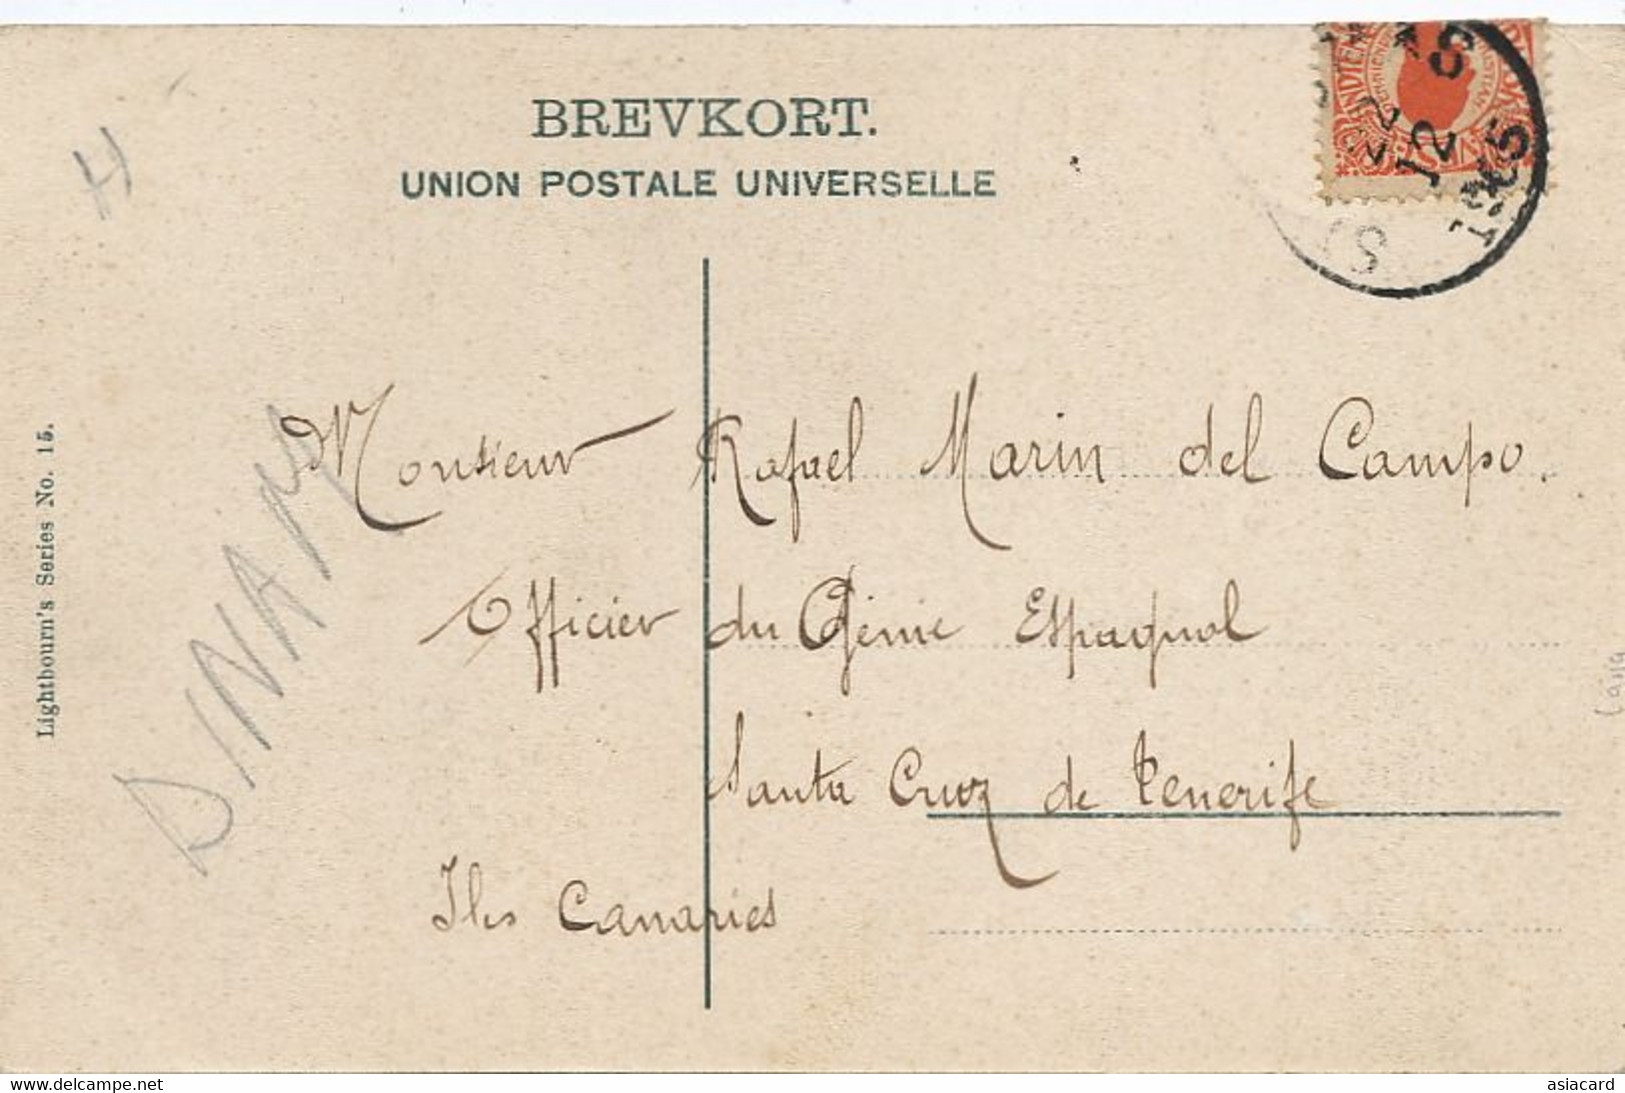 BREVKORT.
UNION POSTALE UNIVERSELLE
H
Monsieur Rafael Marin del Campo.
Officier du Génie Espagnol
Santa Cruz de Tenerife
Iles Canaries
Lightbourn's Series No. 15.
www.delcampe.net
asiacard